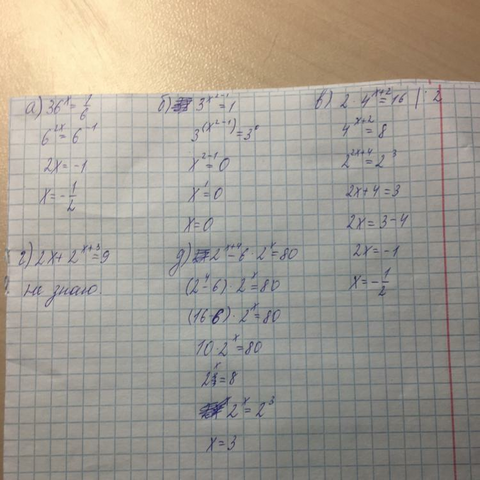 а) 36^x = 1/6
6^2x = 6^-1
2x = -1
x = -1/2
б) 3^x^2-1 = 1
3^(x^2-1) = 3^0
x^2-1 = 0
x^1 = 0
x = 0
в) 2 · 4^x+2 = 16 | : 2
4^x+2 = 8
2^2x+4 = 2^3
2x + 4 = 3
2x = 3 - 4
2x = -1
x = -1/2
г) 2x + 2^x+3 = 9
не знаю
д) 2^x+4 - 6 · 2^x = 80
(2^4 - 6) 2^x = 80
(16 - 6) · 2^x = 80
10 · 2^x = 80
2^x = 8
2^x = 2^3
x = 3